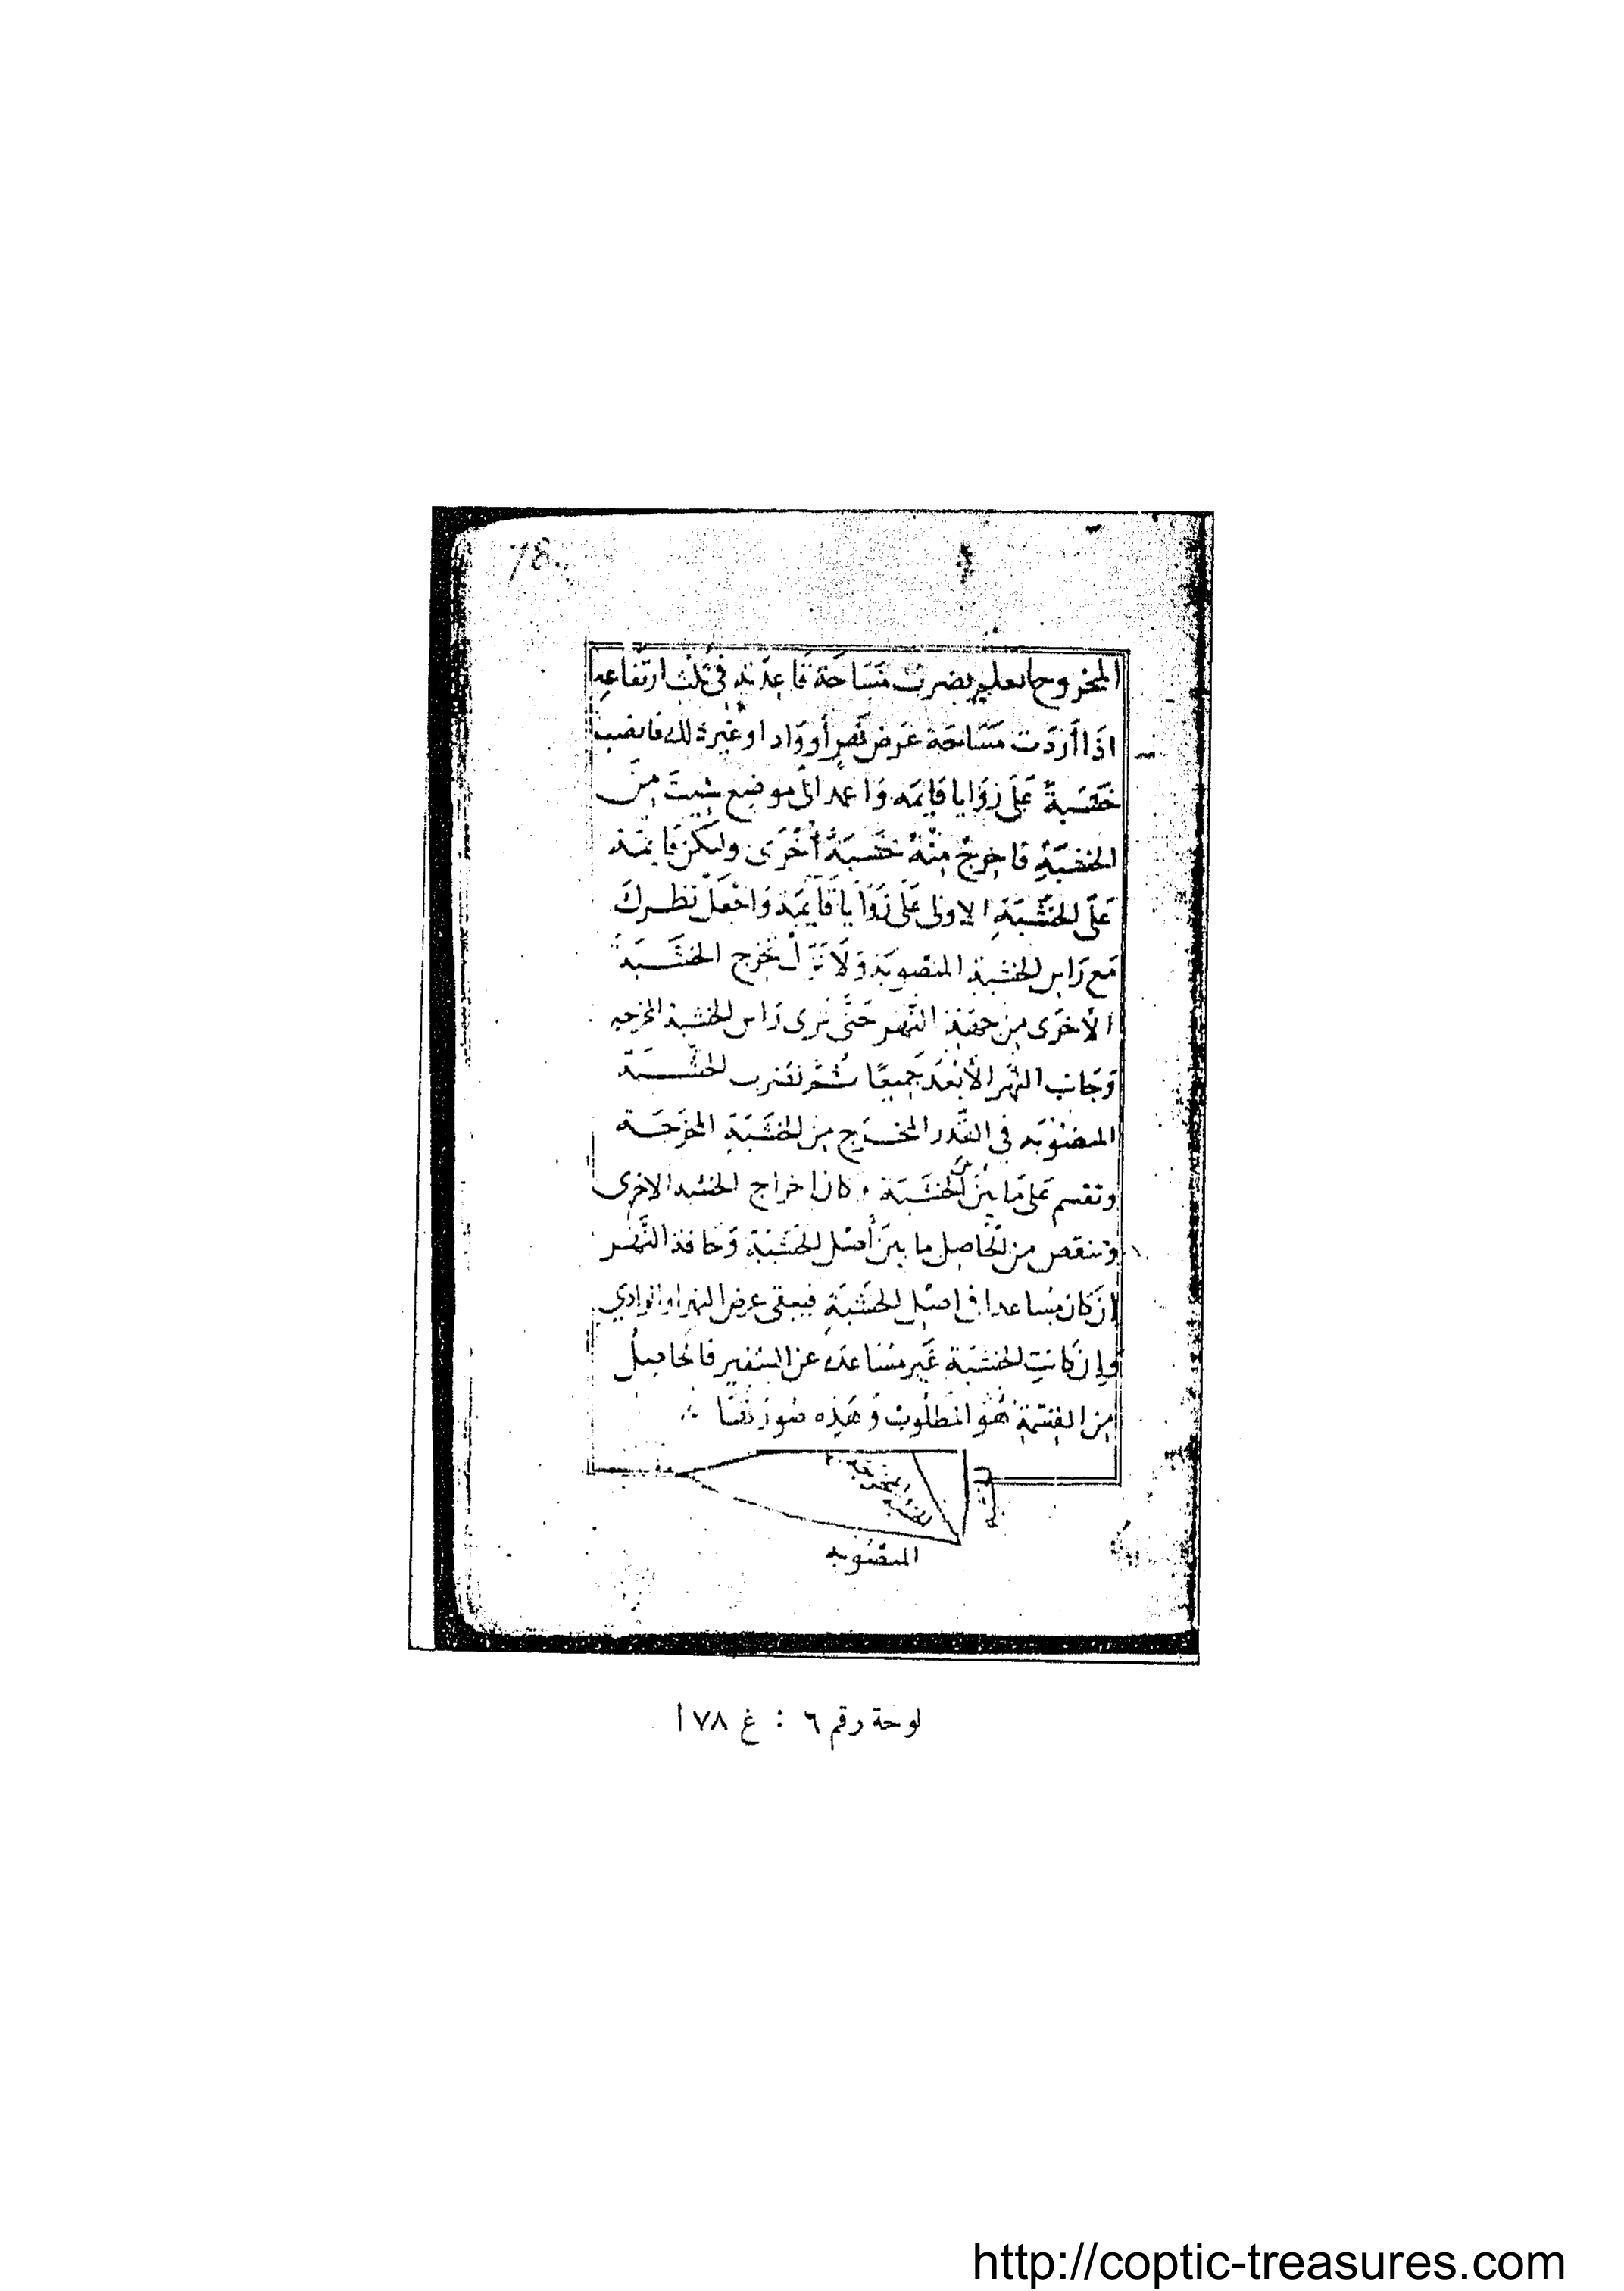 78
المخروطات يضرب مساحة قاعدته في ثلث ارتفاعه
اذا أردت مساحة عرض نهر أو واد او غير ذلك فانصب
خشبة على زوايا قايمه واعمد الى موضع شيت من
الخشبة فاخرج منه خشبة أخرى وليكن قايمة
على الخشبة الاولى على زوايا قايمة واجعل نظرك
مع راس الخشبة المنصوبة ولا تزل تخرج الخشبة
الأخرى من جهة النهر حتى ترى راس الخشبة المخرجه
وجانب النهر الأبعد جميعا ثم تضرب الخشبة
المنصوبه في القدر المخرج من الخشبة المخرجة
وتقسم على ما بين الخشبة وكان اخراج الخشبه الاخرى
وتنقص من الحاصل ما بين أصل الخشبة وحافة النهر
ان كان اصل الخشبة فيبقى عرض النهر او الوادي
وإن كانت الخشبة غير متباعده عن الشفير فالحاصل
من القسمة هو المطلوب وهذه صورتها
المنصوبه
لوحة رقم ٦ : غ ٧٨ أ
http://coptic-treasures.com